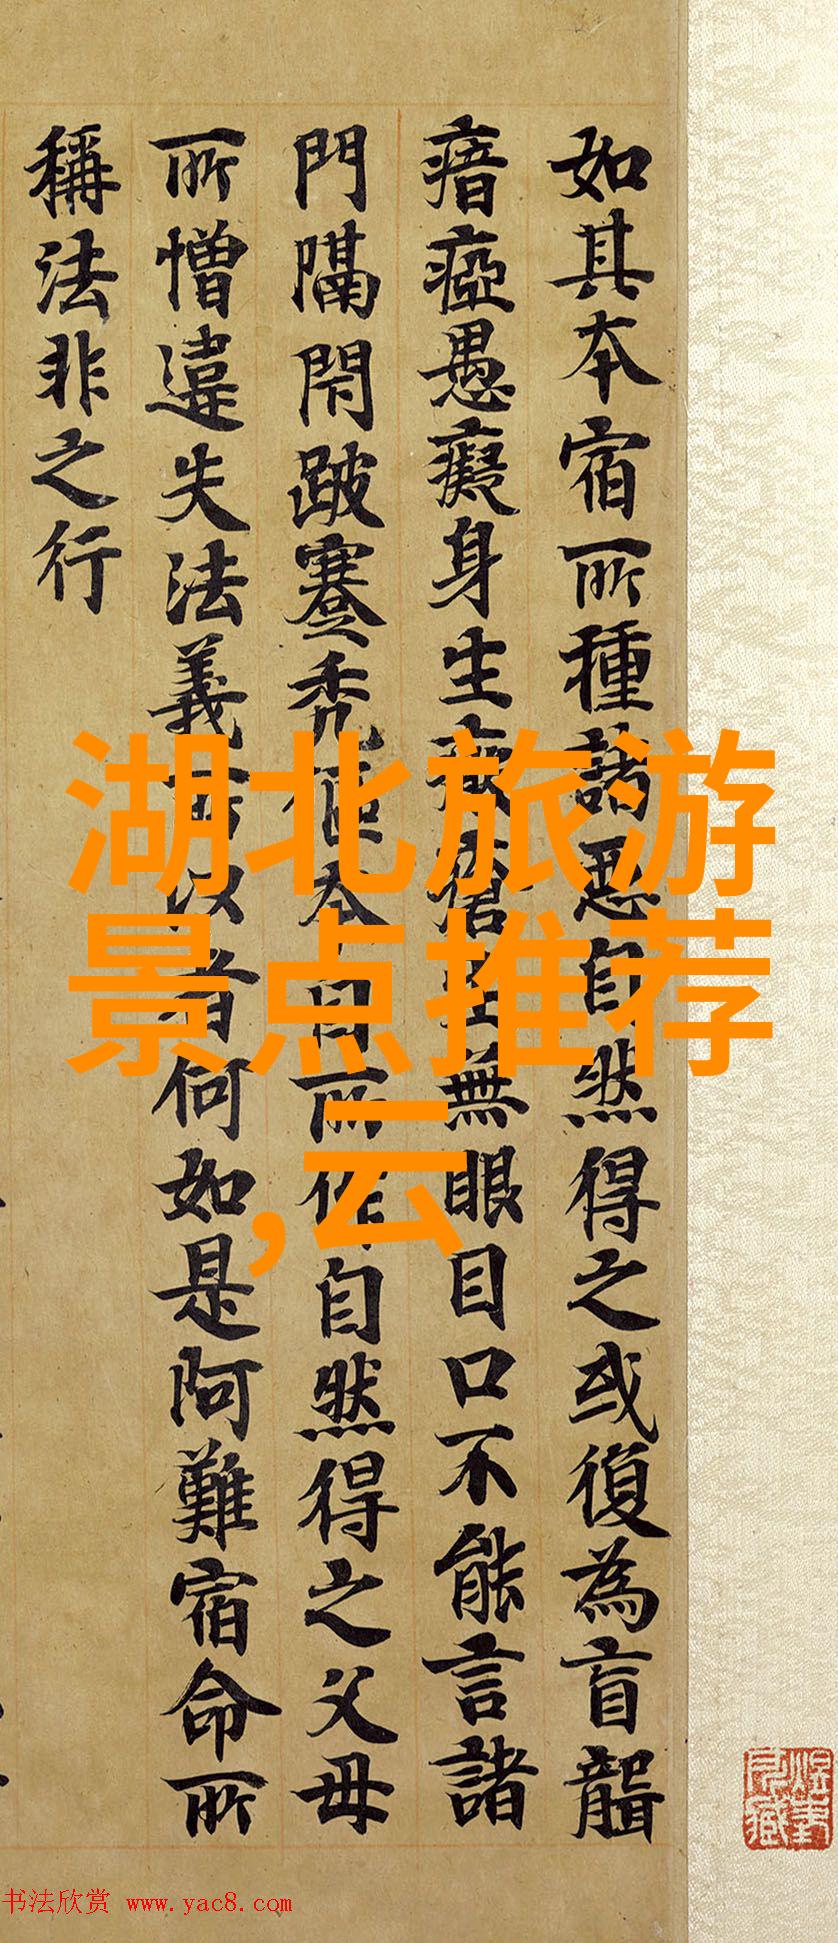 如其本宿所種諸惡自然得之或復為盲聾
瘖瘂愚癡身生瘡無眼目口不能言諸
門隔閇跛蹇禿傴本自所作自然得之父母
所憎違失法義所以者何如是阿難宿命所
稱法非之行
湖北旅游
景点推荐
,云
书法欣赏 www.yac8.com